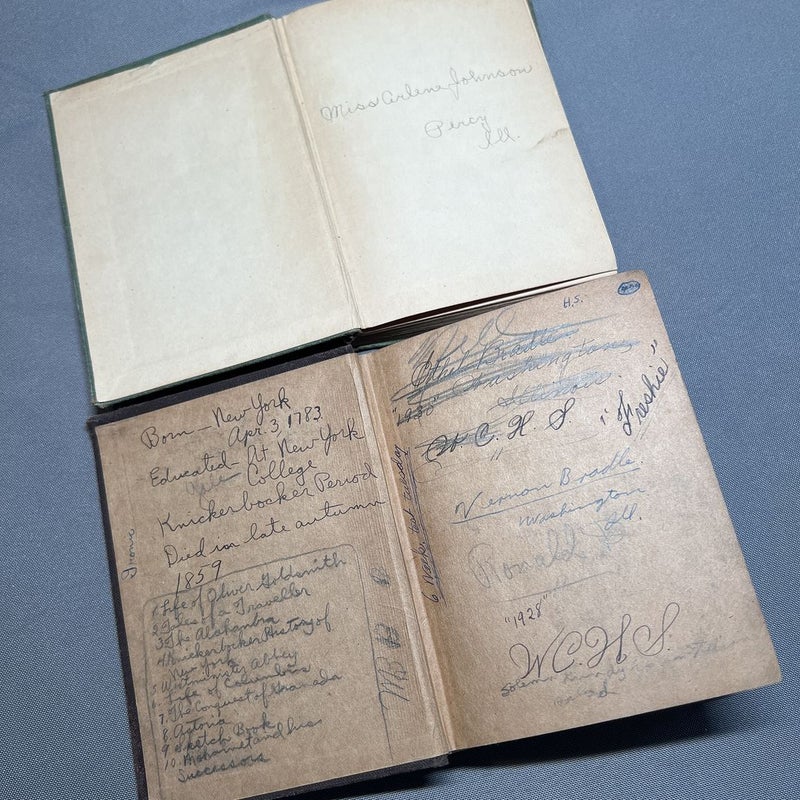 Miss Arlene Johnson
Percy
Ill.
Born - New York
Apr. 3, 1783
Educated - At New York
College
Knickerbocker Period
Died in late autumn
1859
1. Life of Oliver Goldsmith
2. Tales of a Traveller
3. The Alahambra
4. Knickerbocker History of
New York
5. Westminister Abbey
6. Life of Columbus
7. The Conquest of Granada
8. Astoria
9. Sketch Book
10. Mahomet and his
Successors
H.S.
Bradle
Washington
"1930"
W. C. H. S
"Freshie"
6 Weeks test tuesday
Vernon Bradle
Washington
Ill.
Ronald
"1928"
W.C.H.S.